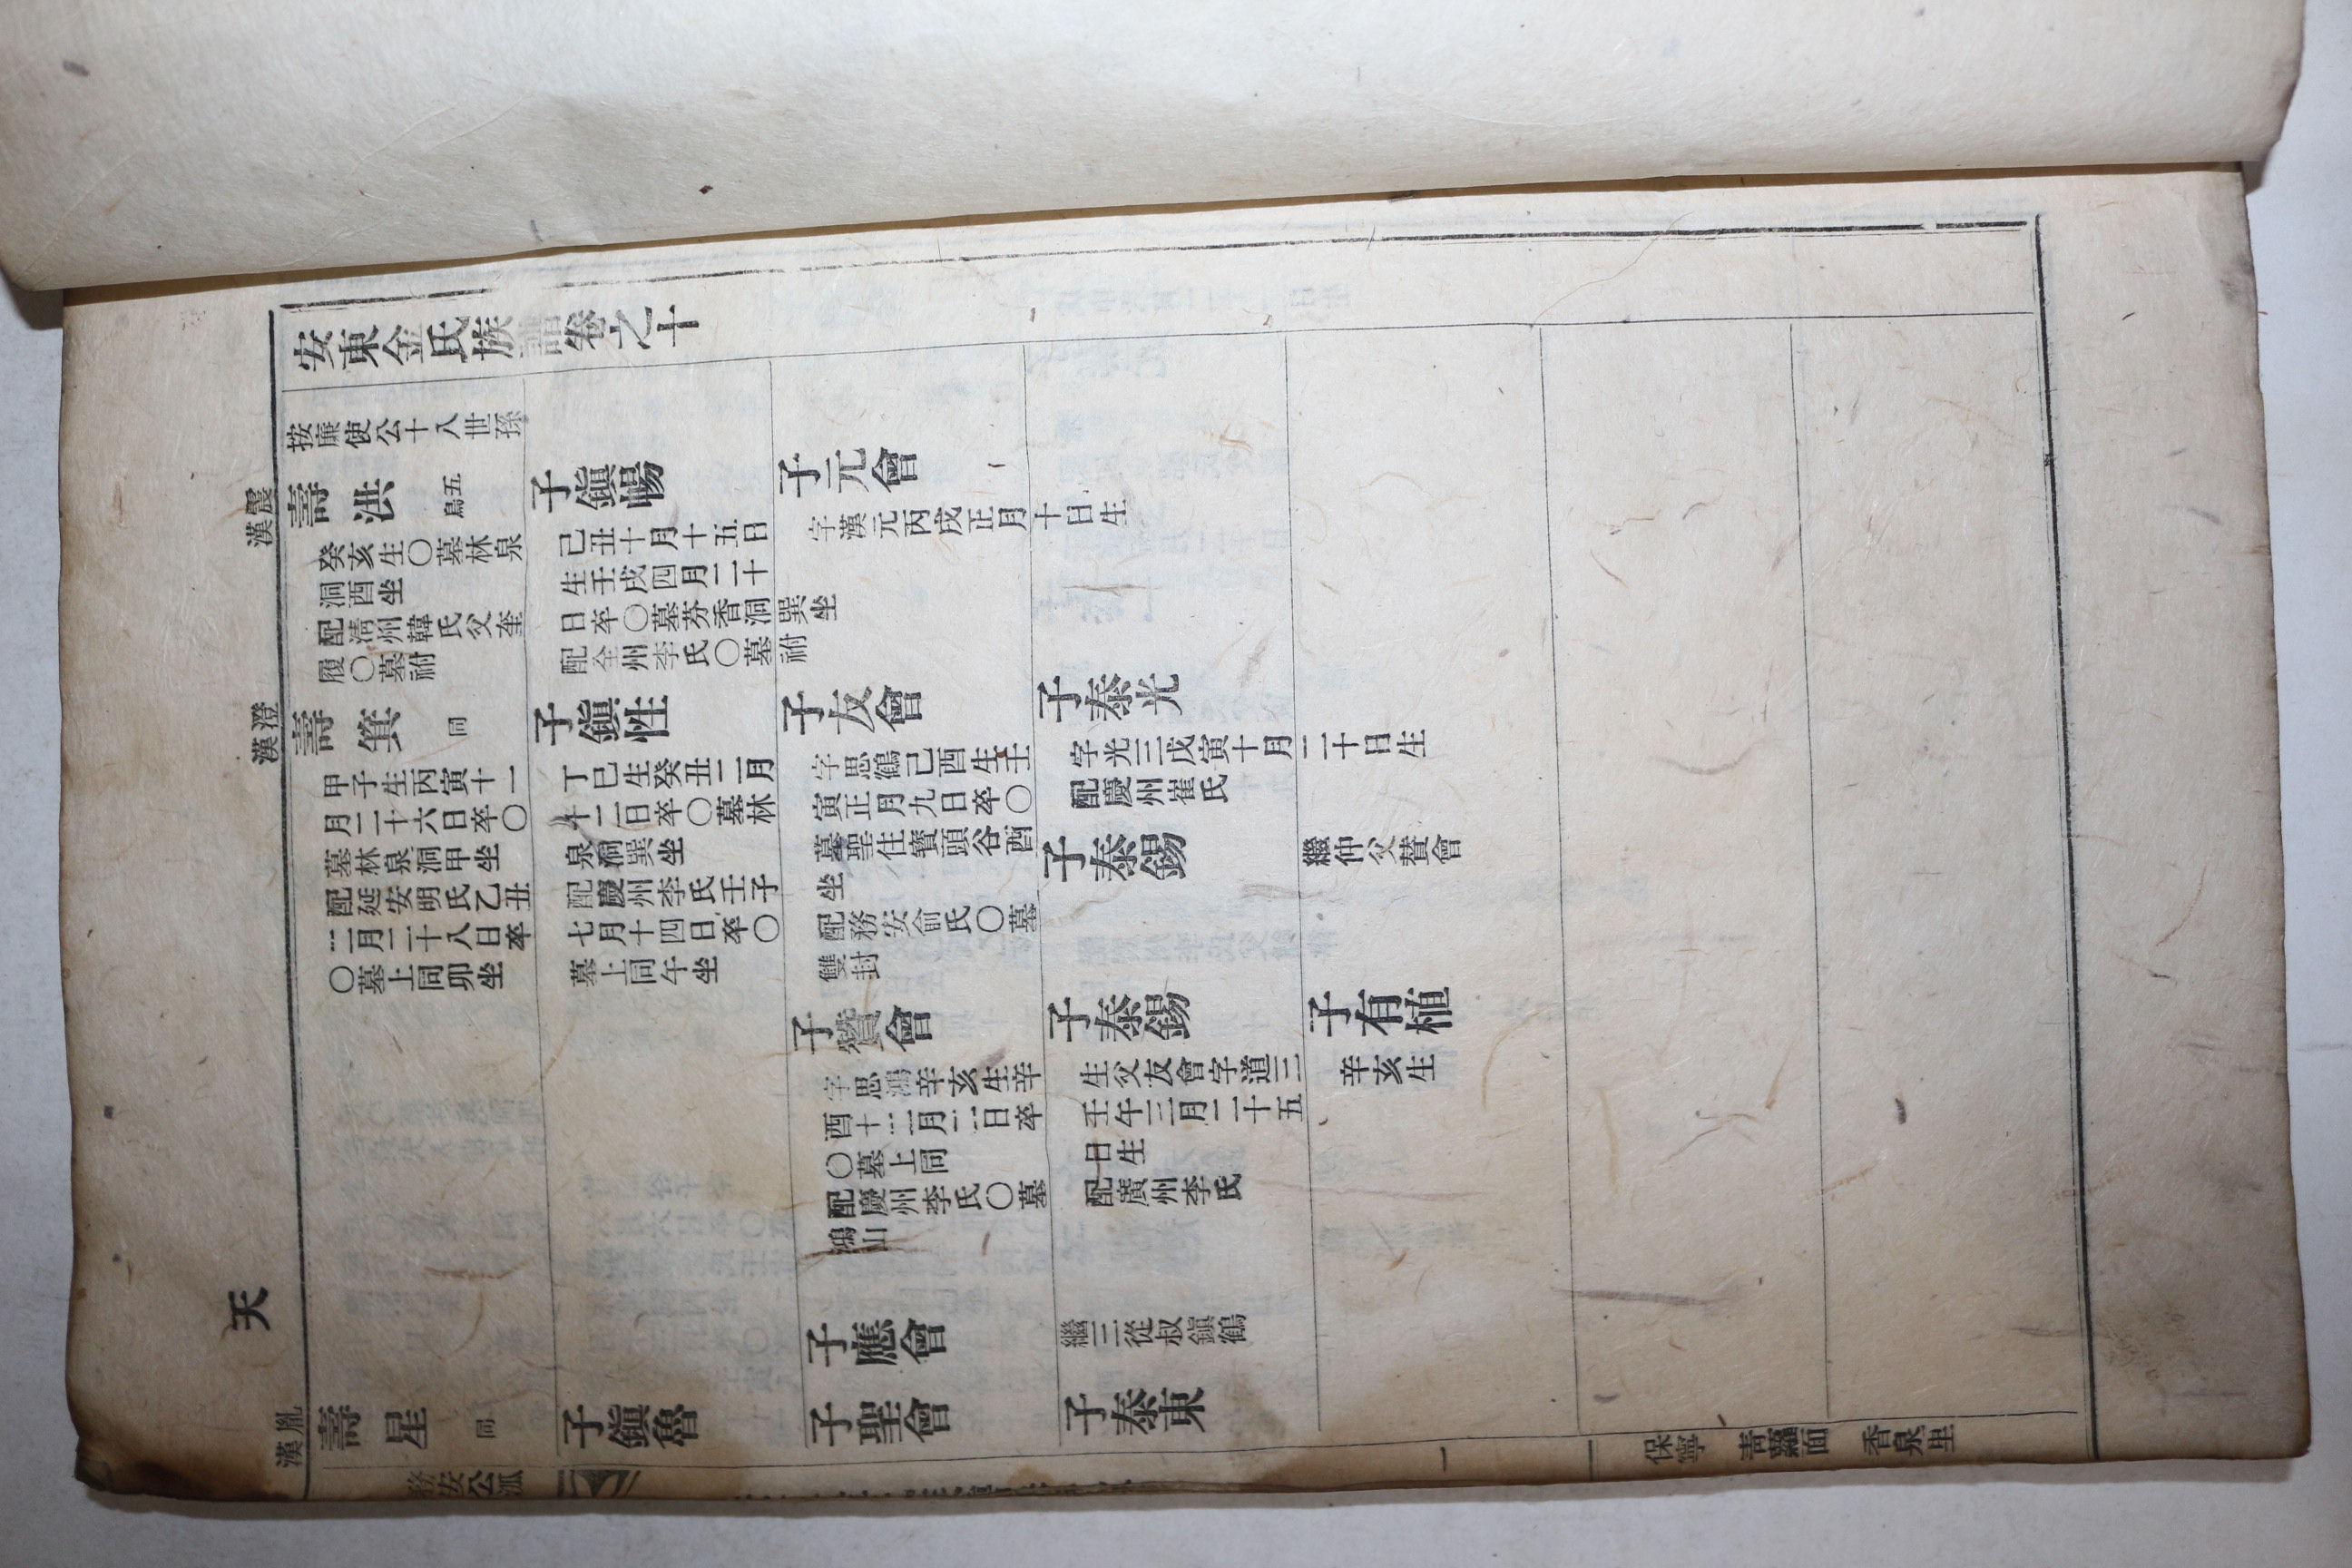 安東金氏族譜卷之十
按廉使公十八世孫
震漢
壽洪 五鳥
癸亥生〇墓林泉
洞酉坐
配淸州韓氏父奎
履〇墓祔
子鎭暢
己丑十月十五日
生壬戌四月二十
日卒〇墓芬香洞巽坐
配全州李氏〇墓祔
子元會
字漢元丙戌正月十日生
澄漢
壽箕 同
甲子生丙寅十一
月二十六日卒〇
墓林泉洞甲坐
配延安明氏乙丑
二月二十八日卒
〇墓上同卯坐
子鎭性
丁巳生癸丑二月
十二日卒〇墓林
泉洞巽坐
配慶州李氏壬子
七月十四日卒〇
墓上同午坐
子友會
字思鶴己酉生壬
寅正月九日卒〇
墓聖住寶頭谷酉
坐
配務安俞氏〇墓
雙封
子泰光
字光三戊寅十月二十日生
配慶州崔氏
子泰錫
繼仲父贊會
子贊會
字思鴻辛亥生辛
酉十二月二日卒
〇墓上同
配慶州李氏〇墓
鴻山
子泰錫
生父友會字道三
壬午三月二十五
日生
配廣州李氏
子有植
辛亥生
天
子應會
繼三從叔鎭鶴
胤漢
壽星 同
子鎭魯
子聖會
子泰東
務安公派
一
保寧 靑蘿面 香泉里